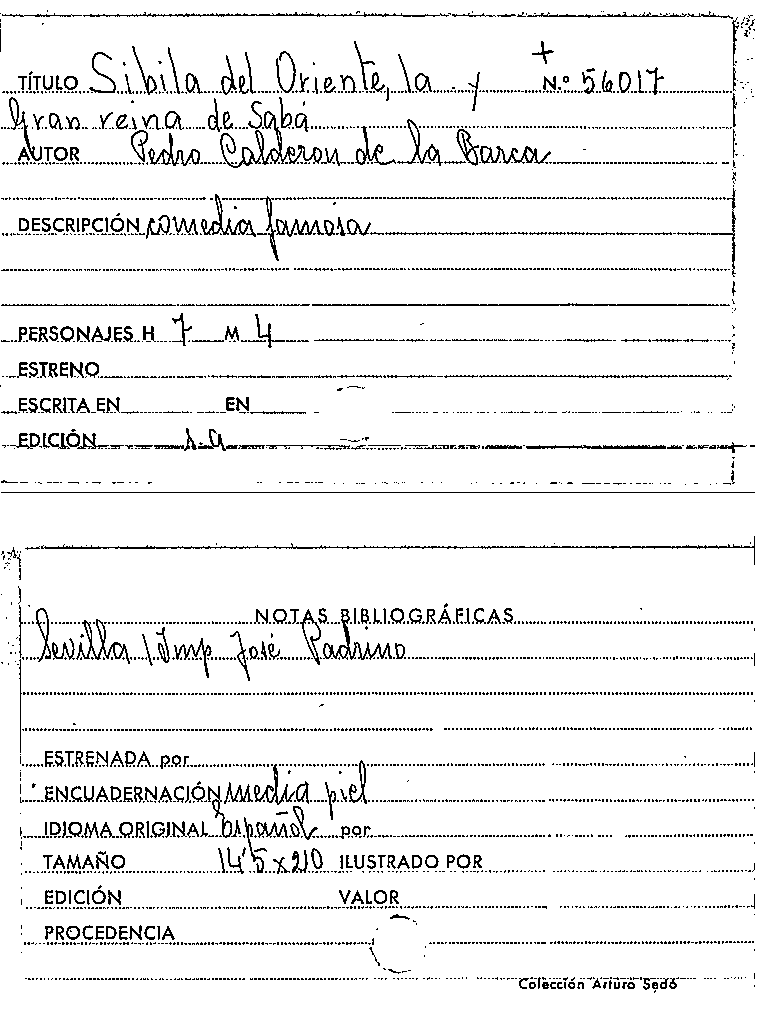 +
TÍTULO Sibila del Oriente, la y N.º 56017
Gran reina de Sabá
AUTOR Pedro Calderon de la Barca
DESCRIPCIÓN comedia famosa
PERSONAJES H 7 M 4
ESTRENO
ESCRITA EN EN
EDICIÓN s.a
NOTAS BIBLIOGRÁFICAS
Sevilla / Imp José Padrino
ESTRENADA por
ENCUADERNACIÓN media piel
IDIOMA ORIGINAL Español por
TAMAÑO 14'5 x 210 ILUSTRADO POR
EDICIÓN VALOR
PROCEDENCIA
Colección Arturo Sedó